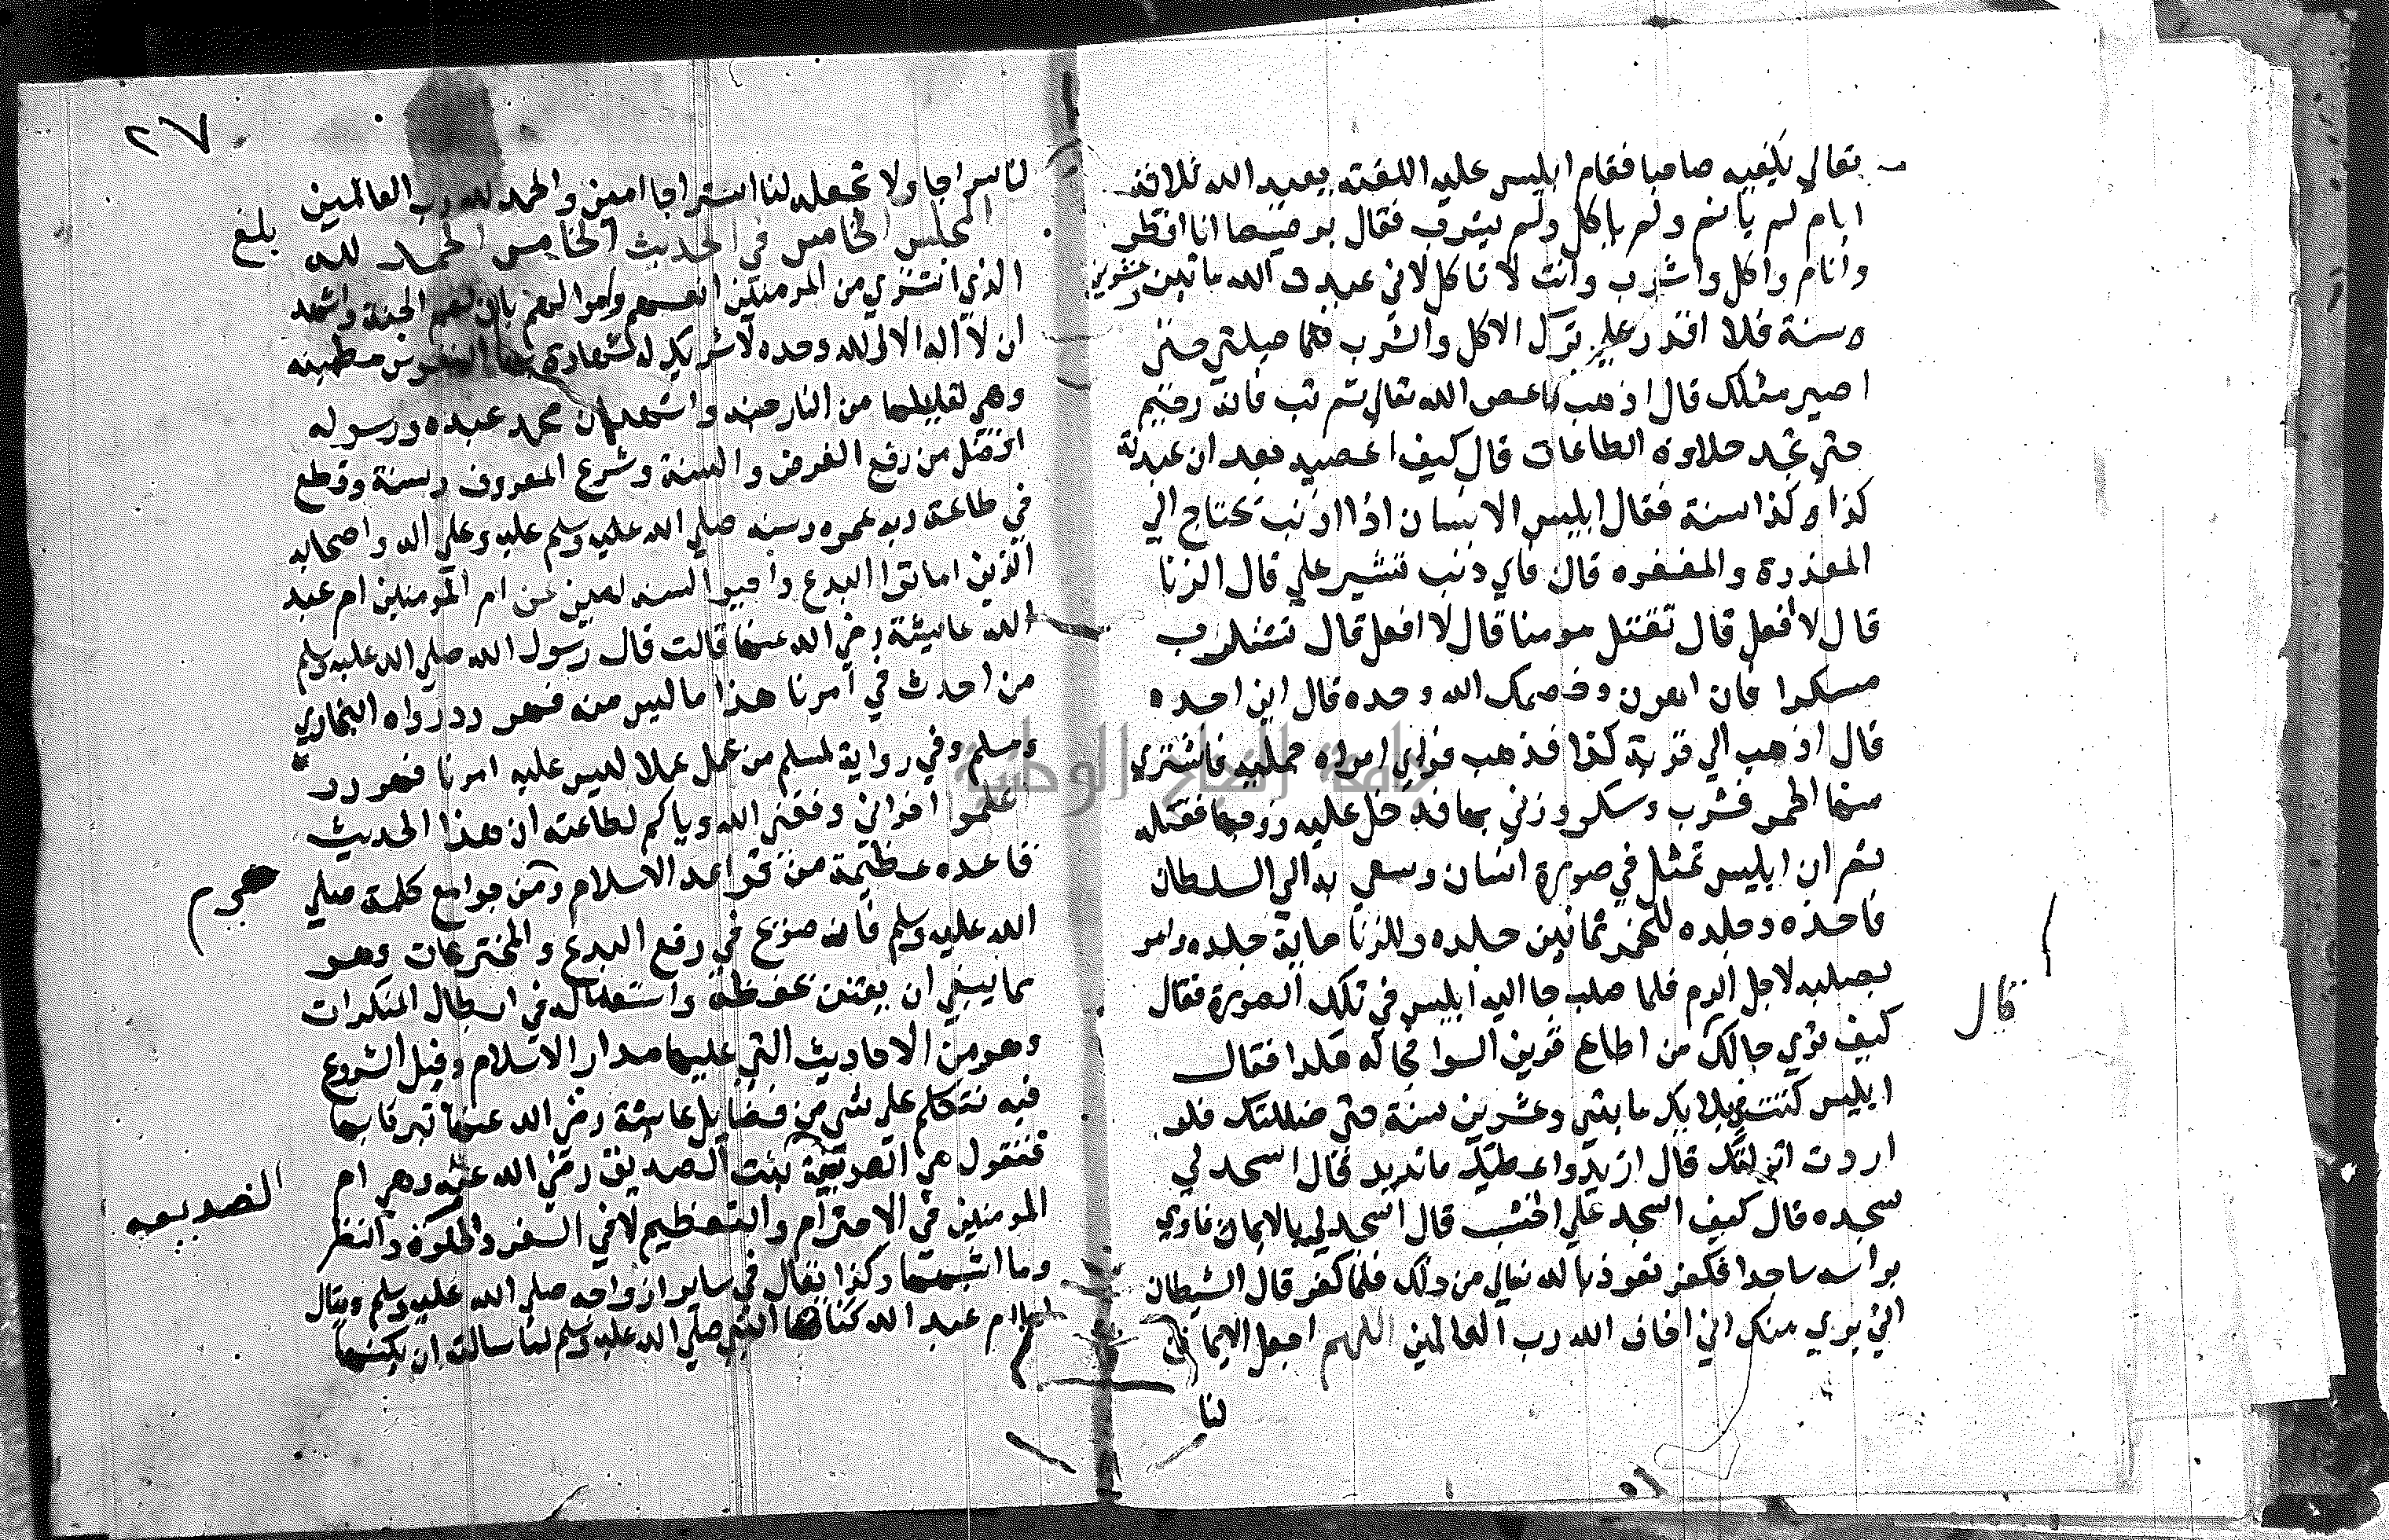 تعالى يكفيه صاحبا فقام ابليس عليه اللعنة يعبد الله ثلاثة
ايام لم ينم ولم ياكل ولم يشرب فقال برصيصا انا افطر
وانام واكل واشرب وانت لا تاكل لاني عبدت الله مايتين وعشرين
وسنة فلا اقدر على ترك الاكل والشرب فما حيلتي حتى
اصير مثلك قال اذهب فاعص الله تعالى ثم تب فانه رحيم
حتى تجد حلاوة الطاعات قال كيف اعصيه بعد ان عبدته
كذا وكذا سنة فقال ابليس الانسان اذا اذنب يحتاج الى
المعذرة والمغفره قال فاي ذنب تشير علي قال الزنا
قال لا افعل قال تقتل مومنا قال لا افعل قال تشرب
مسكرا فانه اهون وخصمك الله وحده قال اين اجده
قال اذهب الى قرية كذا فذهب فراي امراه جميله فاشترى
منها الخمر فشرب وسكر وزنى بها فدخل عليه زوجها فقتله
ثم ان ابليس تمثل في صورة انسان وسعى به الى السلطان
فاخذه وجلده للخمر ثمانين جلده وللزنا ماية جلده وامر
بصلبه لاجل الدم فلما صلب جا اليه ابليس في تلك الصورة فقال
كيف ترى حالك من اطاع قرين السوا فحاله هكذا فقال
قال
ابليس كنت في بلايك مايتي وعشرين سنة حتى ضللتك فلو
اردت انزلتك قال اريد واعطيك ما تريد قال اسجد لي
سجده قال كيف اسجد على الخشب قال اسجد لي بالايمان فاوي
براسه ساجدا فكفر نعوذ بالله تعالى من ذلك فلما كفر قال الشيطان
اني بري منك اني اخاف الله رب العالمين اللهم اجعل الايمان
لنا
٢٧
لنا سراجا ولا تجعله لنا استدراجا امين والحمد لله رب العالمين
المجلس الخامس في الحديث الخامس الحمد لله
بلغ
الذي اشترى من المومنين انفسهم واموالهم بان لهم الجنة واشهد
ان لا اله الا الله وحده لا شريك له شهادة بها النفوس مطمينه
وهي لقايلها من النار جنه واشهد ان محمد عبده ورسوله
افضل من رفع الفرض والسنة وشرع المعروف وسنة وقطع
في طاعة ربه عمره وسنه صلى الله عليه وسلم عليه وعلى اله واصحابه
الذين اماتوا البدع واحيوا السنه امين عن ام المومنين ام عبد
الله عايشة رضي الله عنها قالت قال رسول الله صلى الله عليه وسلم
من احدث في امرنا هذا ما ليس منه فهو رد رواه البخاري
ومسلم وفي رواية لمسلم من عمل عملا ليس عليه امرنا فهو رد
اعلموا اخواني وفقني الله واياكم لطاعته ان هذا الحديث
قاعده عظيمة من قواعد الاسلام ومن جوامع كلمة صلى
الله عليه وسلم فانه صريح في رفع البدع والمخترعات وهو
مما ينبغي ان يعتنى بحفظه واستعماله في ابطال المنكرات
وهو من الاحاديث التي عليها مدار الاسلام وقبل الشروع
فيه نتكلم على شي من فضايل عايشة رضي الله عنها تبركا بها
فنقول هي الصديقة بنت الصديق رضي الله عنه وهي ام
الصديقه
المومنين في الاحترام والتعظيم لا في السفر والخلوة والنظر
وما اشبهها وكذا يقال في ساير ازواجه صلى الله عليه وسلم ويقال
لها ام عبد الله كناها النبي صلى الله عليه وسلم لما سالته ان يكنيها
جامعة النجاح الوطنية